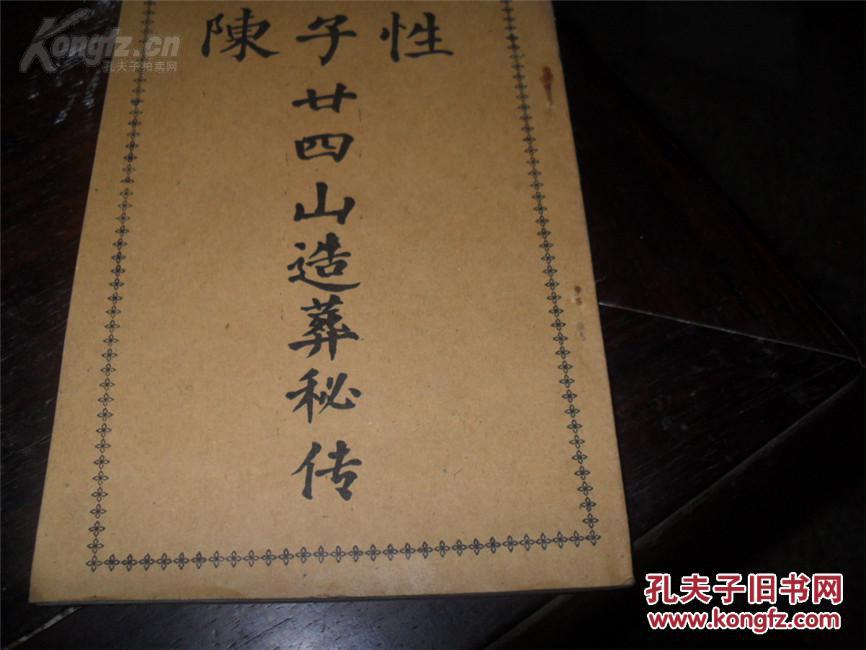 Kongfz.cn
孔夫子拍卖网
陳子性
廿四山造葬秘传
孔夫子旧书网
www.Kongfz.com